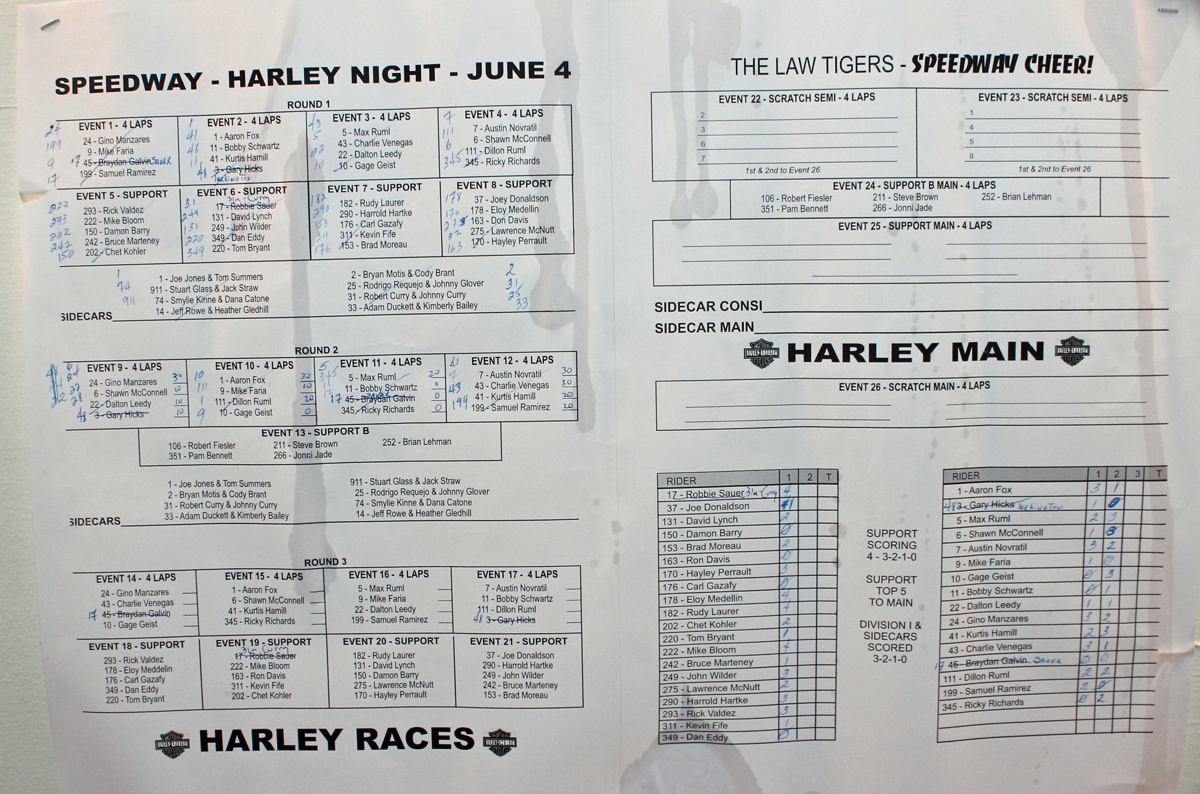 SPEEDWAY - HARLEY NIGHT - JUNE 4
ROUND 1
EVENT 1 - 4 LAPS
24 - Gino Manzares
9 - Mike Faria
17 45 - Braydan Galvin SAUER
199 - Samuel Ramirez
EVENT 2 - 4 LAPS
1 - Aaron Fox
11 - Bobby Schwartz
41 - Kurtis Hamill
3 - Gary Hicks
EVENT 3 - 4 LAPS
5 - Max Ruml
43 - Charlie Venegas
22 - Dalton Leedy
10 - Gage Geist
EVENT 4 - 4 LAPS
7 - Austin Novratil
6 - Shawn McConnell
111 - Dillon Ruml
345 - Ricky Richards
EVENT 5 - SUPPORT
293 - Rick Valdez
222 - Mike Bloom
150 - Damon Barry
242 - Bruce Marteney
202 - Chet Kohler
EVENT 6 - SUPPORT
17 - Robbie Sauer
131 - David Lynch
249 - John Wilder
349 - Dan Eddy
220 - Tom Bryant
EVENT 7 - SUPPORT
182 - Rudy Laurer
290 - Harrold Hartke
176 - Carl Gazafy
311 - Kevin Fife
153 - Brad Moreau
EVENT 8 - SUPPORT
37 - Joey Donaldson
178 - Eloy Medellin
163 - Don Davis
275 - Lawrence McNutt
170 - Hayley Perrault
1 - Joe Jones & Tom Summers
911 - Stuart Glass & Jack Straw
74 - Smylie Kinne & Dana Catone
14 - Jeff Rowe & Heather Gledhill
2 - Bryan Motis & Cody Brant
25 - Rodrigo Requejo & Johnny Glover
31 - Robert Curry & Johnny Curry
33 - Adam Duckett & Kimberly Bailey
SIDECARS
ROUND 2
EVENT 9 - 4 LAPS
24 - Gino Manzares
6 - Shawn McConnell
22 - Dalton Leedy
3 - Gary Hicks
EVENT 10 - 4 LAPS
1 - Aaron Fox
9 - Mike Faria
111 - Dillon Ruml
10 - Gage Geist
EVENT 11 - 4 LAPS
5 - Max Ruml
11 - Bobby Schwartz
17 45 - Braydan Galvin
345 - Ricky Richards
EVENT 12 - 4 LAPS
7 - Austin Novratil
43 - Charlie Venegas
41 - Kurtis Hamill
199 - Samuel Ramirez
EVENT 13 - SUPPORT B
106 - Robert Fiesler 211 - Steve Brown 252 - Brian Lehman
351 - Pam Bennett 266 - Jonni Jade
1 - Joe Jones & Tom Summers
2 - Bryan Motis & Cody Brant
31 - Robert Curry & Johnny Curry
33 - Adam Duckett & Kimberly Bailey
911 - Stuart Glass & Jack Straw
25 - Rodrigo Requejo & Johnny Glover
74 - Smylie Kinne & Dana Catone
14 - Jeff Rowe & Heather Gledhill
SIDECARS
ROUND 3
EVENT 14 - 4 LAPS
24 - Gino Manzares
43 - Charlie Venegas
17 45 - Braydan Galvin
10 - Gage Geist
EVENT 15 - 4 LAPS
1 - Aaron Fox
6 - Shawn McConnell
41 - Kurtis Hamill
345 - Ricky Richards
EVENT 16 - 4 LAPS
5 - Max Ruml
9 - Mike Faria
22 - Dalton Leedy
199 - Samuel Ramirez
EVENT 17 - 4 LAPS
7 - Austin Novratil
11 - Bobby Schwartz
111 - Dillon Ruml
48 3 - Gary Hicks
EVENT 18 - SUPPORT
293 - Rick Valdez
178 - Eloy Meddelin
176 - Carl Gazafy
349 - Dan Eddy
220 - Tom Bryant
EVENT 19 - SUPPORT
17 - Robbie Sauer
222 - Mike Bloom
163 - Ron Davis
311 - Kevin Fife
202 - Chet Kohler
EVENT 20 - SUPPORT
182 - Rudy Laurer
131 - David Lynch
150 - Damon Barry
275 - Lawrence McNutt
170 - Hayley Perrault
EVENT 21 - SUPPORT
37 - Joe Donaldson
290 - Harrold Hartke
249 - John Wilder
242 - Bruce Marteney
153 - Brad Moreau
HARLEY RACES
THE LAW TIGERS - SPEEDWAY CHEER!
EVENT 22 - SCRATCH SEMI - 4 LAPS
2
3
6
7
1st & 2nd to Event 26
EVENT 23 - SCRATCH SEMI - 4 LAPS
1
4
5
8
1st & 2nd to Event 26
EVENT 24 - SUPPORT B MAIN - 4 LAPS
106 - Robert Fiesler 211 - Steve Brown 252 - Brian Lehman
351 - Pam Bennett 266 - Jonni Jade
EVENT 25 - SUPPORT MAIN - 4 LAPS
SIDECAR CONSI
SIDECAR MAIN
HARLEY MAIN
EVENT 26 - SCRATCH MAIN - 4 LAPS
RIDER 1 2 T
17 - Robbie Sauer
37 - Joe Donaldson
131 - David Lynch
150 - Damon Barry
153 - Brad Moreau
163 - Ron Davis
170 - Hayley Perrault
176 - Carl Gazafy
178 - Eloy Medellin
182 - Rudy Laurer
202 - Chet Kohler
220 - Tom Bryant
222 - Mike Bloom
242 - Bruce Marteney
249 - John Wilder
275 - Lawrence McNutt
290 - Harrold Hartke
293 - Rick Valdez
311 - Kevin Fife
349 - Dan Eddy
SUPPORT
SCORING
4 - 3-2-1-0
SUPPORT
TOP 5
TO MAIN
DIVISION I &
SIDECARS
SCORED
3-2-1-0
RIDER 1 2 3 T
1 - Aaron Fox 3 1
3 - Gary Hicks
5 - Max Ruml 2 3
6 - Shawn McConnell
7 - Austin Novratil 3 2
9 - Mike Faria 1 0
10 - Gage Geist 0 3
11 - Bobby Schwartz 0 1
22 - Dalton Leedy 1 1
24 - Gino Manzares 3 2
41 - Kurtis Hamill 2 3
43 - Charlie Venegas 3 1
17 45 - Braydan Galvin SAUER 0 0
111 - Dillon Ruml 2 2
199 - Samuel Ramirez 2 0
345 - Ricky Richards 0 2